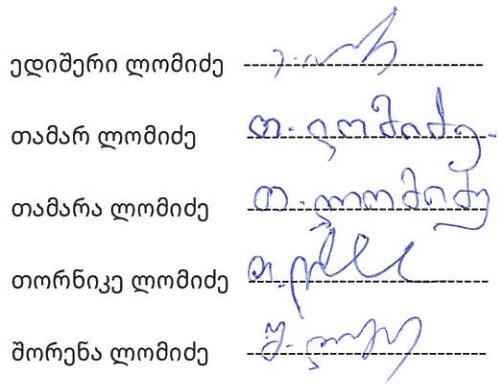 ედიშერი ლომიძე
თამარ ლომიძე თ. ლომიძე
თამარა ლომიძე თ. ლომიძე
თორნიკე ლომიძე
შორენა ლომიძე